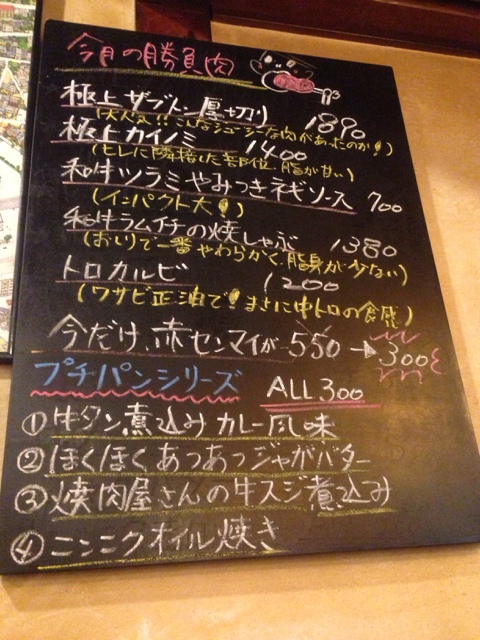 今月の勝負肉
極上ザブトン厚切り 1890
(大人気!!こんなジューシーな肉があったのか!)
極上カイノミ 1400
(ヒレに隣接した部位.脂が甘い)
和牛ツラミやみつきネギソース 700
(インパクト大!)
和牛ラムイチの焼しゃぶ 1380
(おしりで一番やわらかく.脂身が少ない)
トロカルビ 1200
(ワサビ正油で!まさに中トロの食感)
今だけ、赤センマイが 550→300
プチパンシリーズ ALL 300
①牛タン煮込みカレー風味
②ほくほくあつあつジャがバター
③焼肉屋さんの牛スジ煮込み
④ニンニクオイル焼き